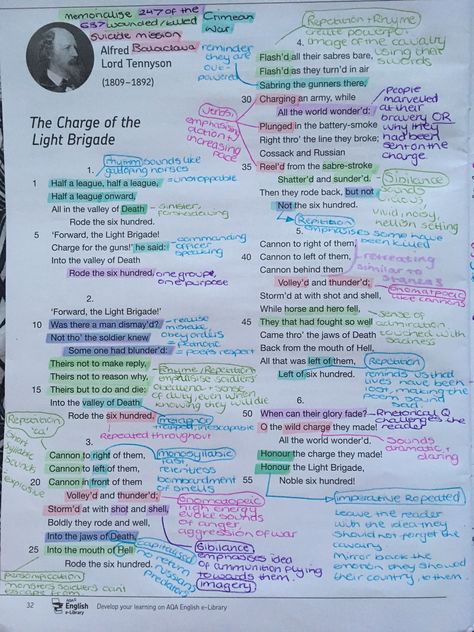 memorialise 247 of the
637 wounded/killed
Crimean
War
suicide mission
Balaclava
reminder
they are
over-
powered
Alfred
Lord Tennyson
(1809–1892)
The Charge of the
Light Brigade
rhythm sounds like
galloping horses
1.
1 Half a league, half a league,
=unstoppable
Half a league onward,
All in the valley of Death
- sinister,
foreshadowing
Rode the six hundred.
5 'Forward, the Light Brigade!
Charge for the guns!' he said:
commanding
officer
speaking
Into the valley of Death
Rode the six hundred.
one group,
one purpose
2.
'Forward, the Light Brigade!'
10 Was there a man dismay'd?
realise
mistake
Not tho' the soldier knew
obey orders
= patriotic
Some one had blunder'd:
= poems respect
Theirs not to make reply,
Theirs not to reason why,
Rhyme/Repetition
emphasise soldiers
15 Theirs but to do and die:
obedience + sense
of duty, even when
knowing they will die
Into the valley of Death
Rode the six hundred.
metaphor
trapped inescapable
Repeated throughout
Repetition
'ed'
short
syllable
sounds
explosive
3.
Cannon to right of them,
Cannon to left of them,
20 Cannon in front of them
monosyllabic
fast
relentless
bombardment
of shells
Volley'd and thunder'd;
Storm'd at with shot and shell,
Onomatopoeic
high energy
evoke sounds
of anger,
aggression of war
Boldly they rode and well,
Into the jaws of Death,
25 Into the mouth of Hell
Rode the six hundred.
Capitalised
no return
Russians
predators
Sibilance
emphasises idea
of ammunition flying
towards them.
imagery
personification
monsters soldiers can't
escape from
Repetition + Rhyme
create powerful
image of the cavalry
using their
swords
4.
Flash'd all their sabres bare,
Flash'd as they turn'd in air
Sabring the gunners there,
30 Charging an army, while
All the world wonder'd:
People
marvelled
at their
bravery OR
why they
had been
sent on the
charge
Verbs:
emphasise
action,
increasing
pace
Plunged in the battery-smoke
Right thro' the line they broke;
Cossack and Russian
35 Reel'd from the sabre-stroke
Shatter'd and sunder'd.
Sibilance
sounds
vicious
Then they rode back, but not
Not the six hundred.
vivid, noisy,
hellish setting
Repetition
emphasises some have
been killed
5.
Cannon to right of them,
40 Cannon to left of them,
Cannon behind them
retreating
similar to
stanza 3
Volley'd and thunder'd;
Onomatopoeic
like cannons
Storm'd at with shot and shell,
While horse and hero fell,
45 They that had fought so well
sense of
admiration
toned with
sadness
Came thro' the jaws of Death
Back from the mouth of Hell,
All that was left of them,
Left of six hundred.
Repetition
reminds us that
lives have been
lost, making the
poem sound
sad
6.
50 When can their glory fade?
Rhetorical Q
challenges the
reader
O the wild charge they made!
All the world wonder'd.
Sounds
dramatic +
daring
Honour the charge they made!
55 Honour the Light Brigade,
Noble six hundred!
imperative Repeated
Leave the reader
with the idea they
should not forget the
cavalry
Mirror back the
emotion they showed
their country, to them
32 AQA English e-Library Develop your learning on AQA English e-Library